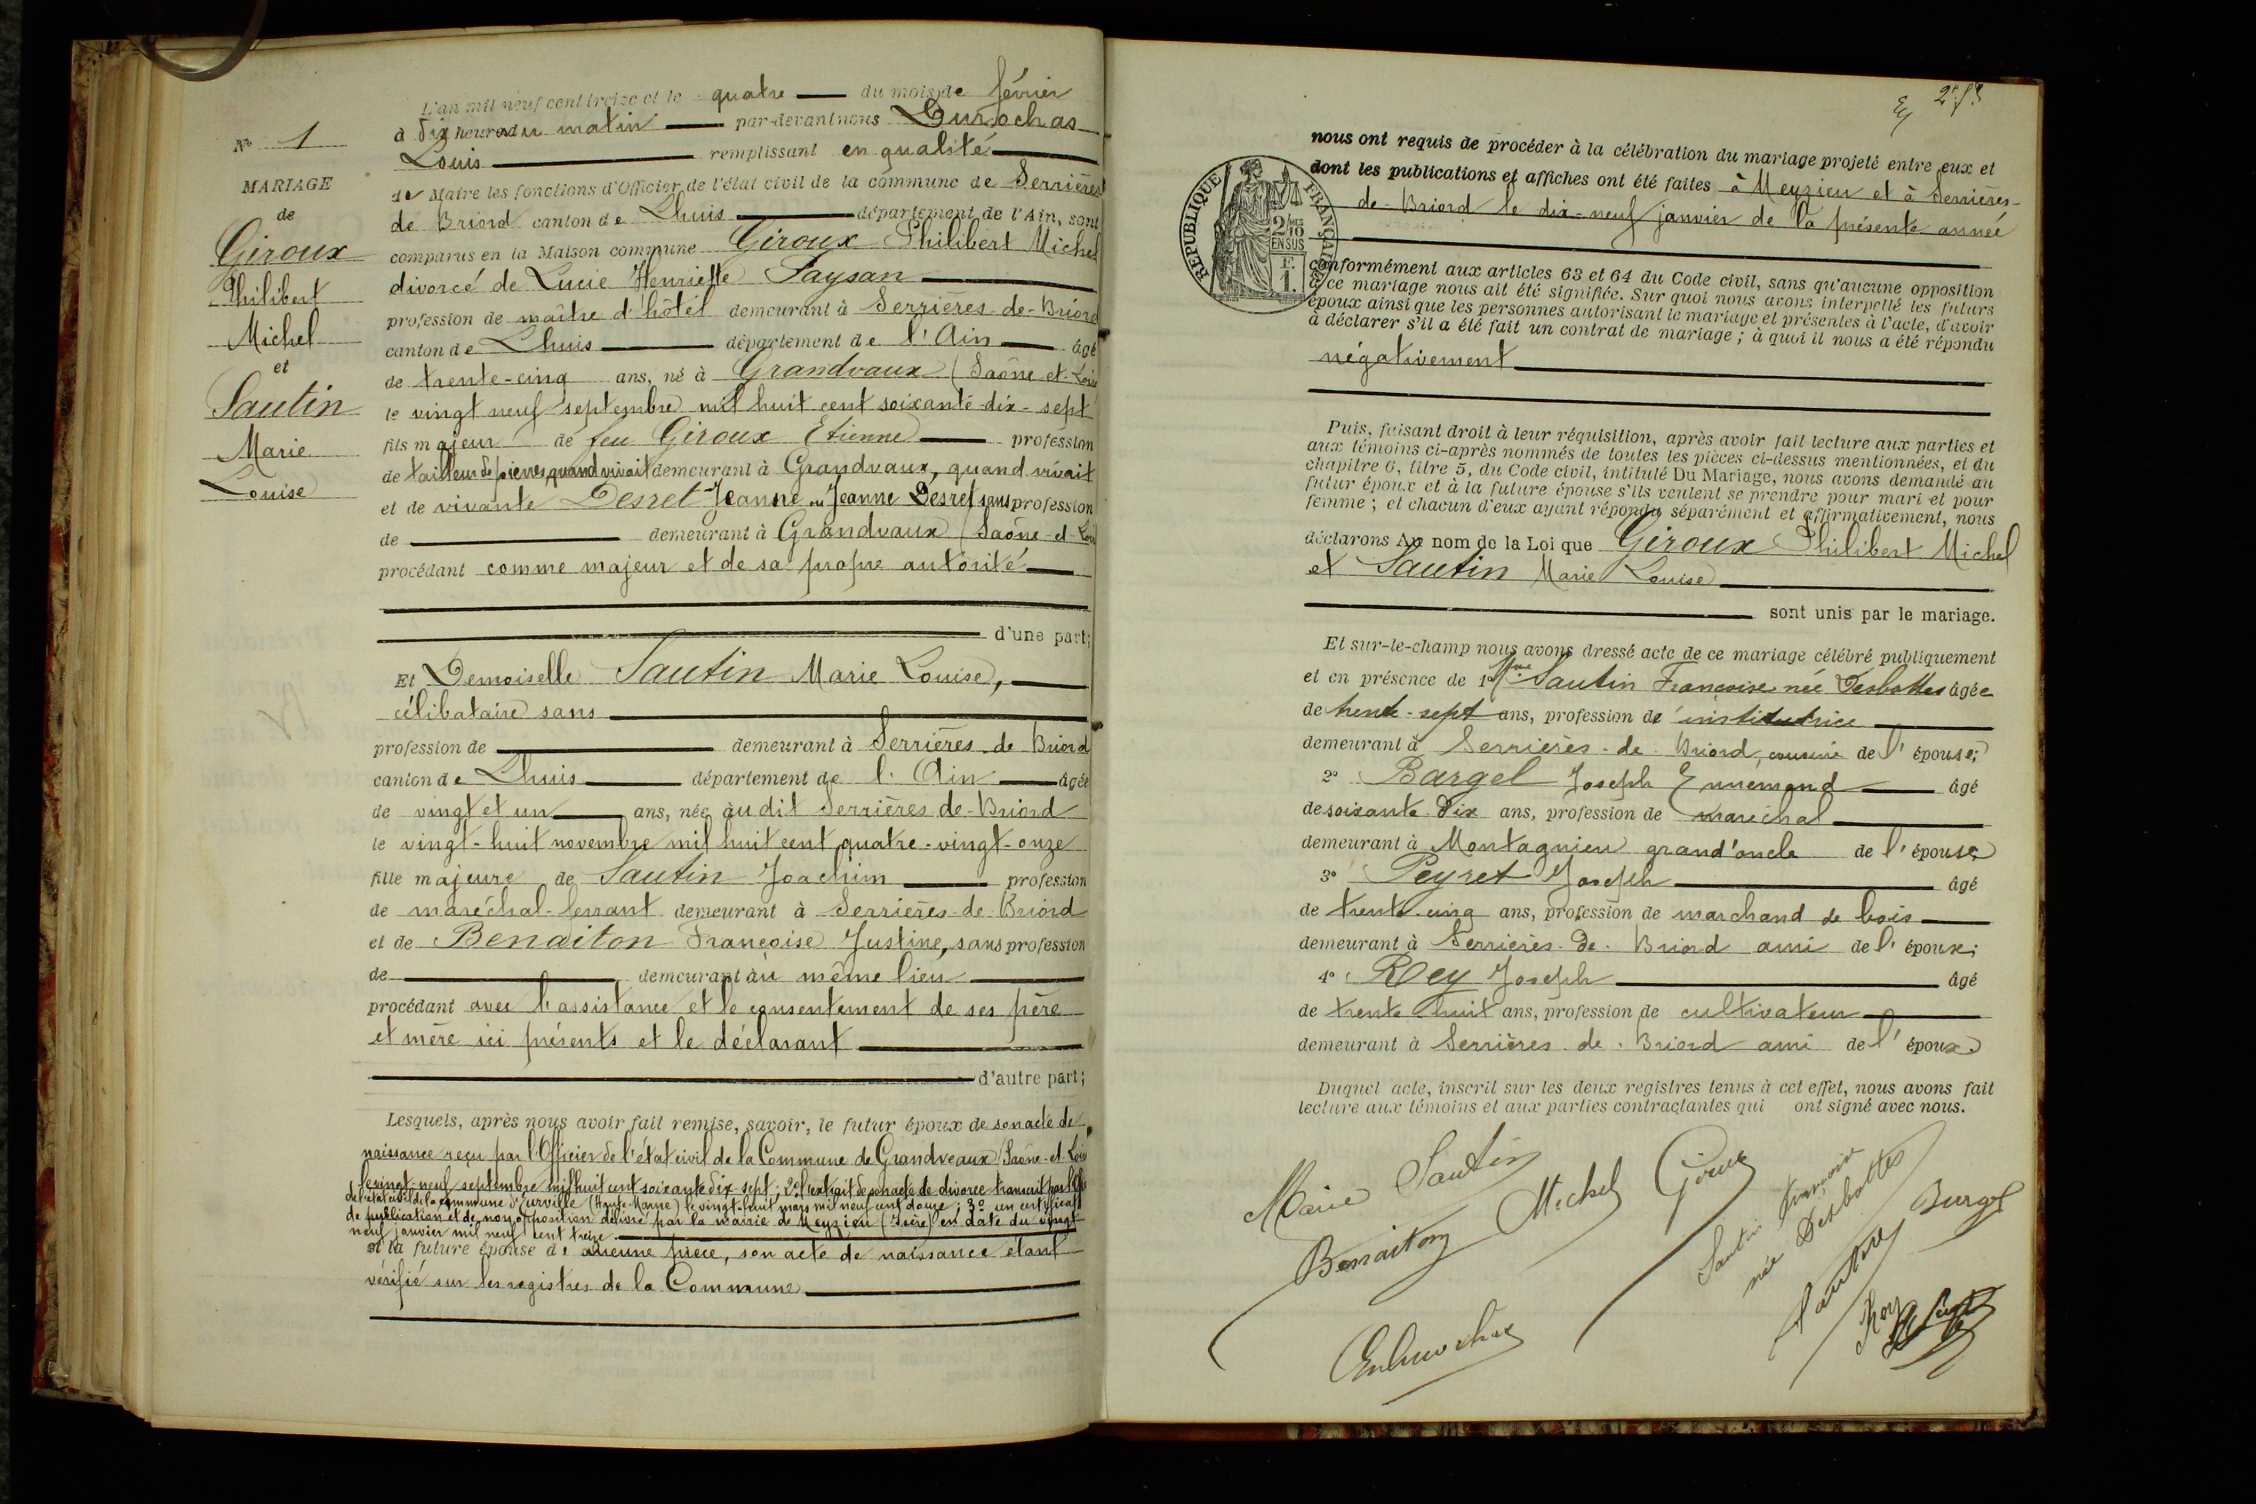 N° 1
MARIAGE
de
Giroux
Philibert
Michel
et
Sautin
Marie
Louise
L'an mil neuf cent treize et le quatre du mois de février
à dix heures du matin par-devant nous Durochas
Louis remplissant en qualité
de Maire les fonctions d'Officier de l'état civil de la commune de Serrières
de Briord canton de Lhuis département de l'Ain, sont
comparus en la Maison commune Giroux Philibert Michel
divorcé de Lucie Henriette Paysan
profession de maître d'hôtel demeurant à Serrières-de-Briord
canton de Lhuis département de l'Ain âgé
de trente-cinq ans, né à Grandvaux (Saône-et-Loire
le vingt neuf septembre mil huit cent soixante-dix-sept
fils majeur de feu Giroux Etienne profession
de tailleur de pierres, quand vivait demeurant à Grandvaux, quand vivait
et de vivante Desret Jeanne ou Jeanne Desret sans profession
de demeurant à Grandvaux (Saône-et-Loire
procédant comme majeur et de sa propre autorité
d'une part;
Et Demoiselle Sautin Marie Louise,
célibataire sans
profession de demeurant à Serrières-de-Briord
canton de Lhuis département de l'Ain âgée
de vingt et un ans, née audit Serrières-de-Briord
le vingt-huit novembre mil huit cent quatre-vingt-onze
fille majeure de Sautin Joachim profession
de maréchal-ferrant demeurant à Serrières-de-Briord
et de Benaiton Françoise Justine, sans profession
de demeurant au même lieu
procédant avec l'assistance et le consentement de ses père
et mère ici présents et le déclarant
d'autre part;
Lesquels, après nous avoir fait remise, savoir, le futur époux de son acte de
naissance reçu par l'Officier de l'état civil de la Commune de Grandveaux (Saône-et-Loire
le vingt-neuf septembre mil huit cent soixante dix sept; 2° l'extrait de son acte de divorce transcrit par l'Off
de l'état civil de la commune d'Eurville (Haute-Marne) le vingt-huit mars mil neuf cent douze; 3° un certificat
de publication et de non opposition délivré par la mairie de Meyzieu (Isère) en date du vingt
neuf janvier mil neuf cent treize
et la future épouse de aucune pièce, son acte de naissance étant
vérifié sur les registres de la Commune
2e f°
RÉPUBLIQUE FRANÇAISE
2/10
EN SUS
1 F.
nous ont requis de procéder à la célébration du mariage projeté entre eux et
dont les publications et affiches ont été faites à Meyzieu et à Serrières-
de-Briord le dix-neuf janvier de la présente année
conformément aux articles 63 et 64 du Code civil, sans qu'aucune opposition
à ce mariage nous ait été signifiée. Sur quoi nous avons interpellé les futurs
époux ainsi que les personnes autorisant le mariage et présentes à l'acte, d'avoir
à déclarer s'il a été fait un contrat de mariage; à quoi il nous a été répondu
négativement
Puis, faisant droit à leur réquisition, après avoir fait lecture aux parties et
aux témoins ci-après nommés de toutes les pièces ci-dessus mentionnées, et du
chapitre 6, titre 5, du Code civil, intitulé Du Mariage, nous avons demandé au
futur époux et à la future épouse s'ils veulent se prendre pour mari et pour
femme; et chacun d'eux ayant répondu séparément et affirmativement, nous
déclarons Au nom de la Loi que Giroux Philibert Michel
et Sautin Marie Louise
sont unis par le mariage.
Et sur-le-champ nous avons dressé acte de ce mariage célébré publiquement
et en présence de 1° Mme Sautin Françoise née Desbottes âgée
de trente-sept ans, profession de institutrice
demeurant à Serrières-de-Briord, cousine de l'épouse;
2° Bargel Joseph Ennemond âgé
de soixante dix ans, profession de maréchal
demeurant à Montagnieu grand'oncle de l'épouse
3° Peyret Joseph âgé
de trente-cinq ans, profession de marchand de bois
demeurant à Serrières-de-Briord ami de l'époux;
4° Rey Joseph âgé
de trente huit ans, profession de cultivateur
demeurant à Serrières-de-Briord ami de l'époux
Duquel acte, inscrit sur les deux registres tenus à cet effet, nous avons fait
lecture aux témoins et aux parties contractantes qui ont signé avec nous.
Marie Sautin Michel Giroux
Benaiton
Sautin Françoise
née Desbottes
Sautin Burgel
Rey